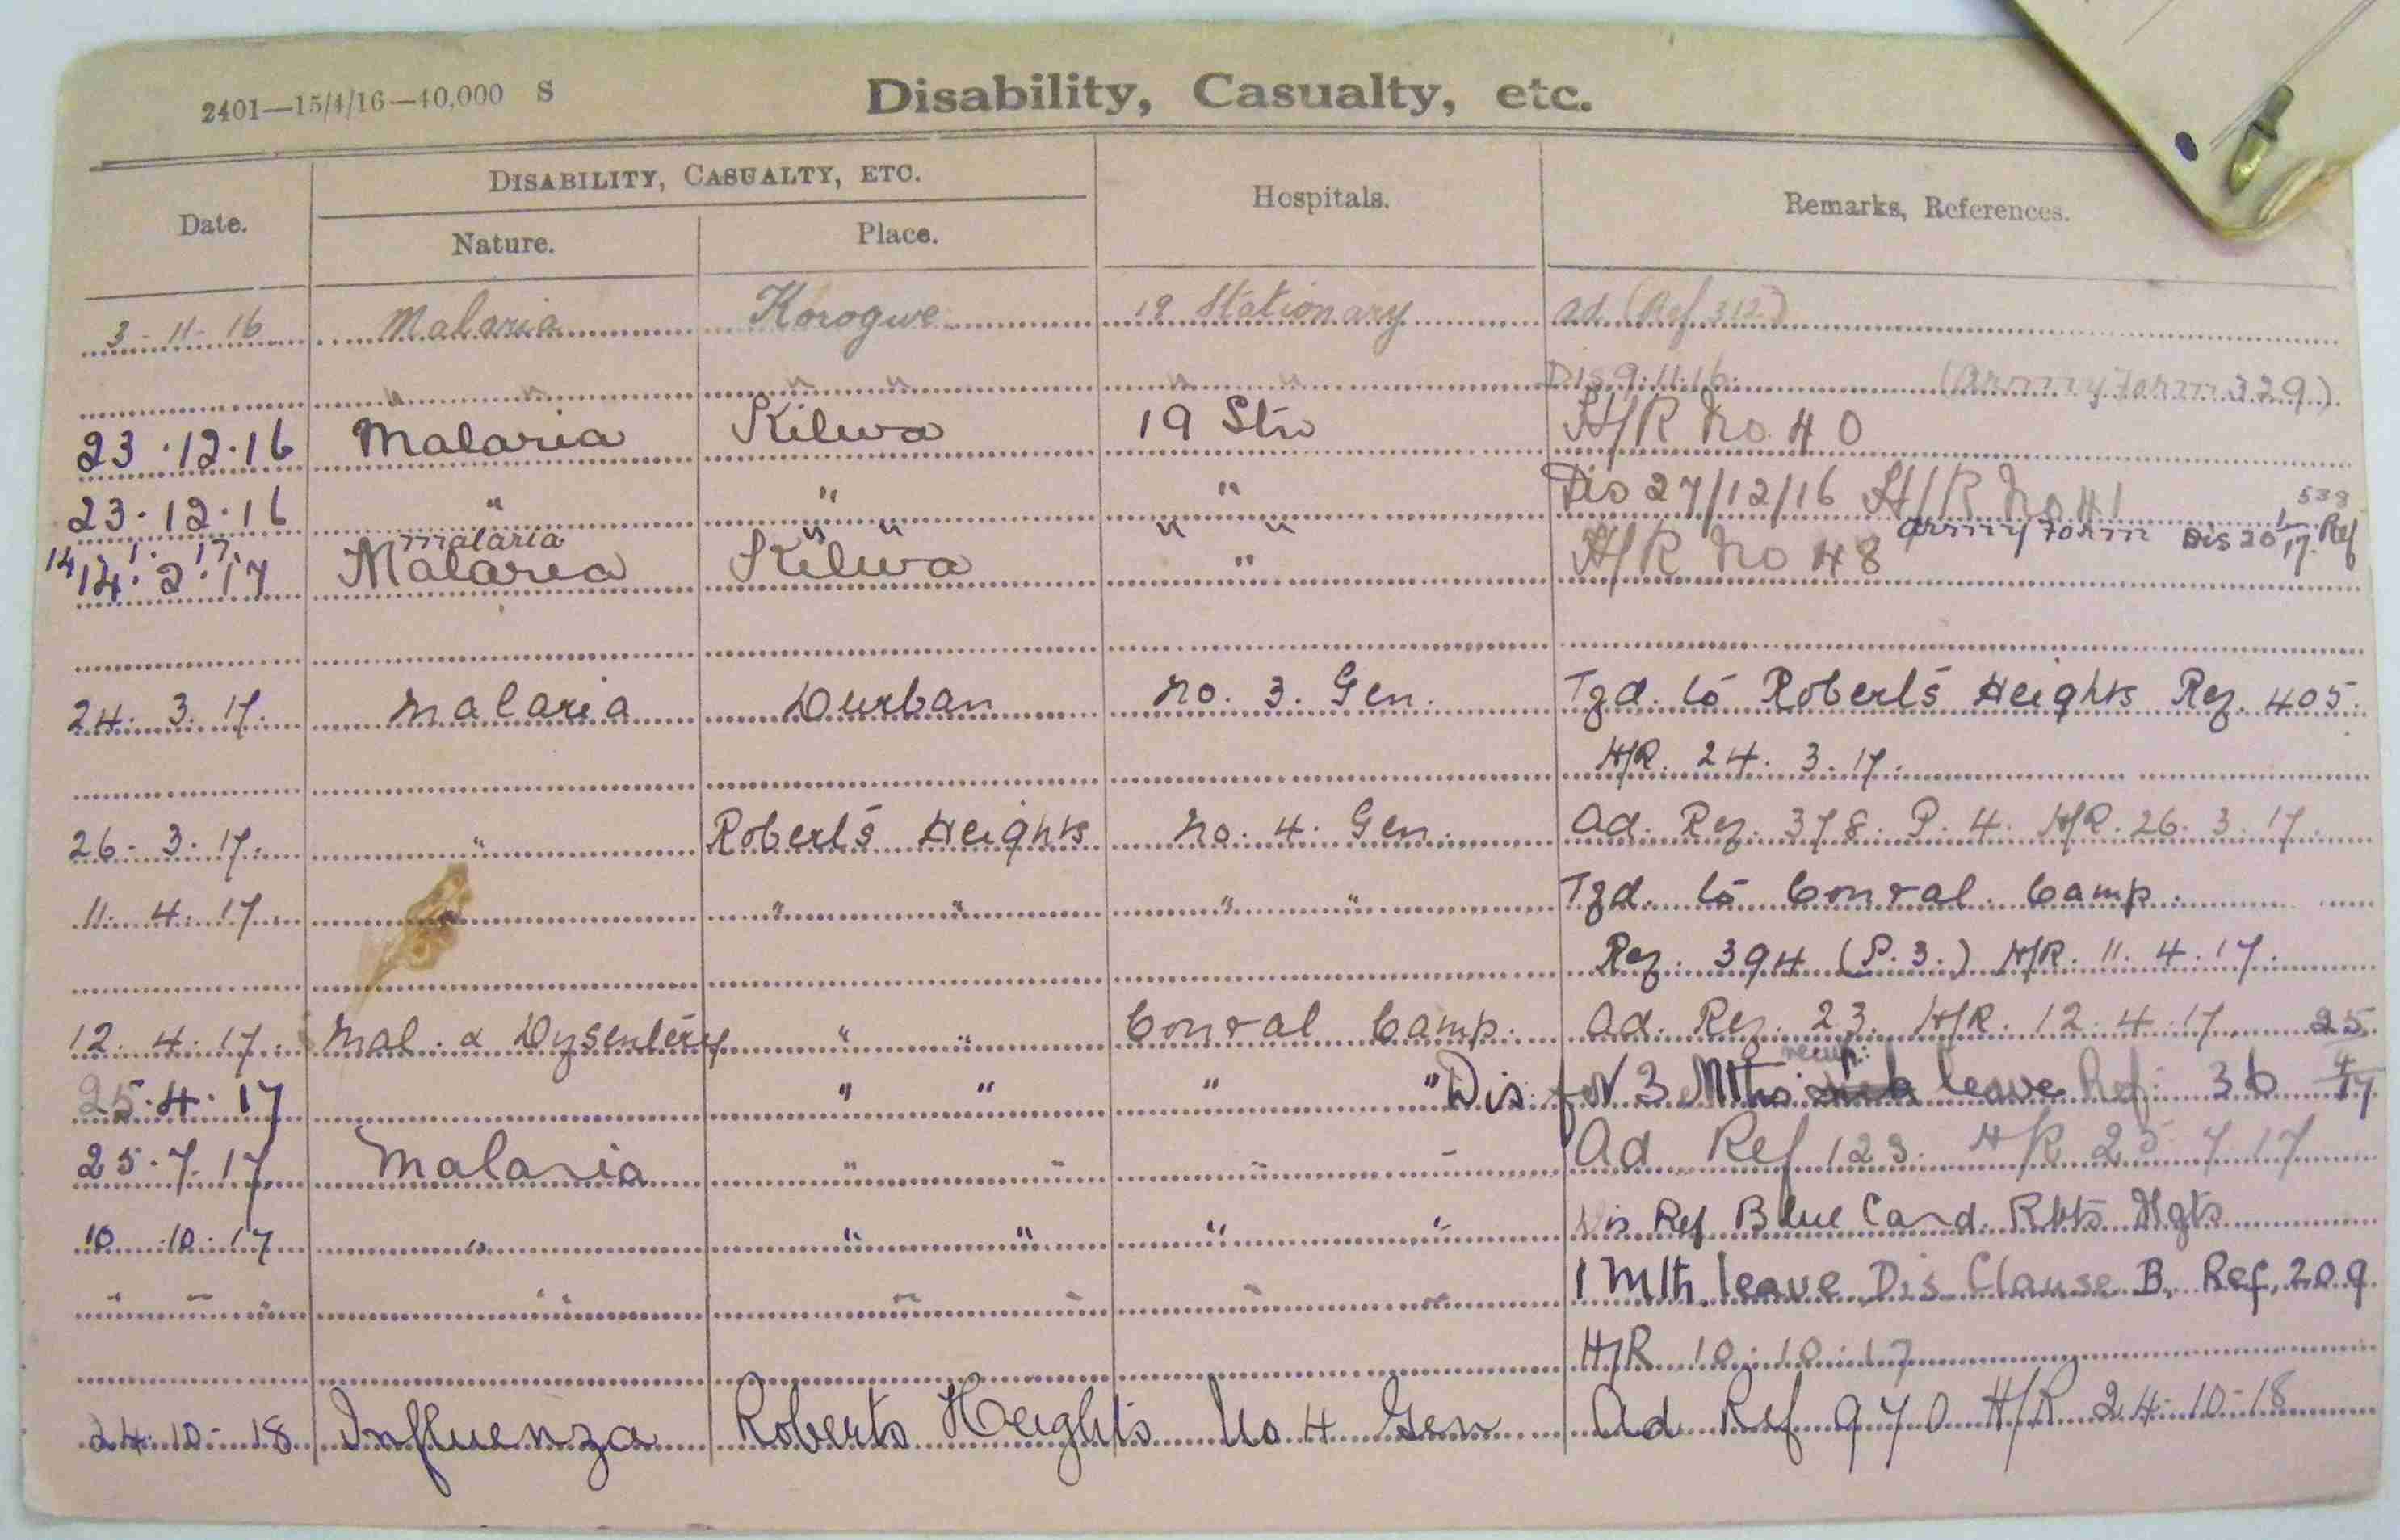 2401—15/4/16—40,000 S Disability, Casualty, etc.
DISABILITY, CASUALTY, ETC.
Date. Nature. Place. Hospitals. Remarks, References.
3-11-16 Malaria Korogwe 19 Stationary ad (Ref 312)
" " " " " " Dis 9.11.16. (Army Form 329).
23.12.16 Malaria Kilwa 19 Stn H/R No. 40
23.12.16 " " " Dis 27/12/16 H/R No 41
14. 1. 17. malaria " " " " Army Form Dis 20/1/17. Ref 538
14.2.17 Malaria Kilwa " H/R No 48
24. 3. 17. Malaria Durban No. 3. Gen. Tfd. to Robert's Heights Ref. 405.
H/R. 24. 3. 17.
26. 3. 17. " Robert's Heights No. 4. Gen. Ad. Ref. 378. P. 4. H/R. 26. 3. 17.
11. 4. 17. " " " " " Tfd. to Conval. Camp.
Ref. 394 (P. 3.) H/R. 11. 4. 17.
12. 4. 17. Mal. & Dysentery " " Conval Camp. Ad. Ref. 23. H/R. 12. 4. 17.
25.4.17 " " " " Dis. for 3 Mths recup: leave Ref: 36 25/4/17
25.7.17 Malaria " " " " Ad Ref 123. H/R 25 7 17
10.10.17 " " " " " Dis Ref Blue Card. Rbts Hgts
" " " " " " " " 1 Mth. leave Dis Clause B. Ref. 209.
H/R 10.10.17
24.10-18 Influenza Roberts Heights No 4 Gen Ad Ref 970 H/R 24-10-18